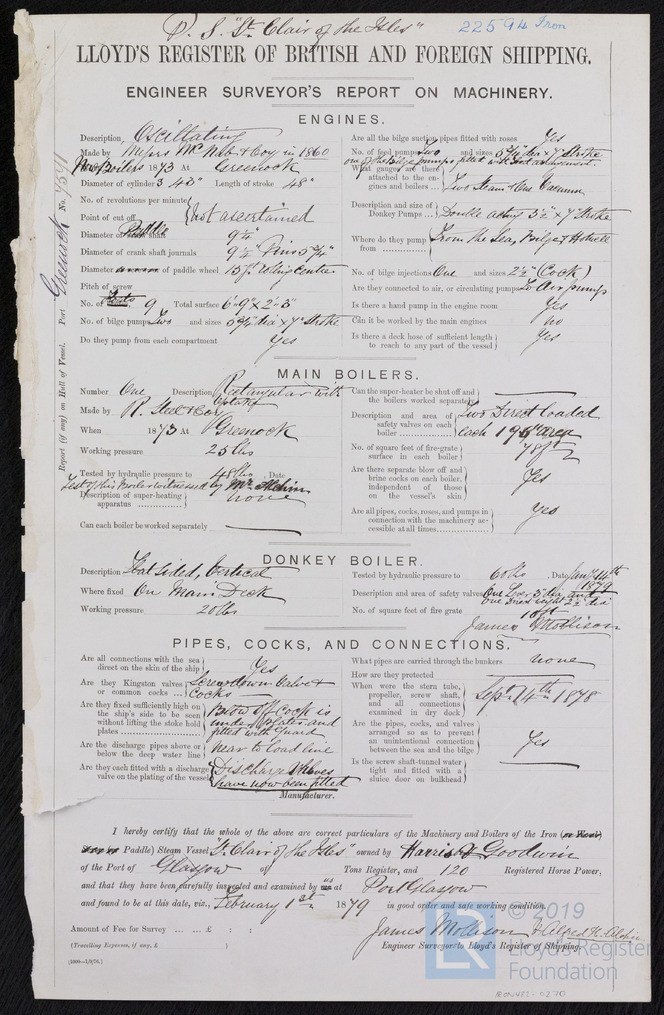 P. S. "St. Clair of the Isles" 22594 Iron
LLOYD'S REGISTER OF BRITISH AND FOREIGN SHIPPING.
ENGINEER SURVEYOR'S REPORT ON MACHINERY.
Report (if any) on Hull of Vessel. Port Greenock No.
ENGINES.
Description, Oscillating
Made by Messrs McNab & Coy in 1860
New Boilers 1873 At Greenock
Diameter of cylinders 43" Length of stroke 48"
No. of revolutions per minute
Point of cut off not ascertained
Diameter of Paddle shaft 9½"
Diameter of crank shaft journals 9½" Pins 5¾"
Diameter of paddle wheel 15 ft rolling centre
Pitch of screw
No. of floats, 9 Total surface 6'·9" × 2'·3"
No. of bilge pumps Two and sizes 5¾" dia × 7" Stroke
Do they pump from each compartment Yes
Are all the bilge suction pipes fitted with roses Yes
No. of feed pumps Two and sizes 5¾" dia × 7" Stroke
one of the bilge pumps fitted with feed arrangement.
What gauges are there attached to the engines and boilers ... Two Steam & One Vacuum
Description and size of Donkey Pumps ... Double acting 3½" × 7" Stroke
Where do they pump from From the Sea, Bilge & Hotwell
No. of bilge injections One and sizes 2½" (Cock)
Are they connected to air, or circulating pumps To Air pumps
Is there a hand pump in the engine room Yes
Can it be worked by the main engines no
Is there a deck hose of sufficient length to reach to any part of the vessel Yes
MAIN BOILERS.
Number One Description Rectangular with
Made by R. Steel & Coy
When 1873 At Greenock
Working pressure 25 lbs
Tested by hydraulic pressure to 48 lbs, Date
Test of this Boiler witnessed by Mr
Description of super-heating apparatus none
Can each boiler be worked separately
Can the super-heater be shut off and the boilers worked separately
Description and area of safety valves on each boiler Two Direct loaded
each 196" area
No. of square feet of fire-grate surface in each boiler 78 ft
Are there separate blow off and brine cocks on each boiler, independent of those on the vessel's skin Yes
Are all pipes, cocks, roses, and pumps in connection with the machinery accessible at all times Yes
DONKEY BOILER.
Description Flat Sided, Vertical
Where fixed On Main Deck
Working pressure 20 lbs
Tested by hydraulic pressure to 60 lbs, Date Jany 14th 1879
Description and area of safety valves One Lever 3" dia and
one Direct weight 2½" dia
No. of square feet of fire grate 10 ft
James Mollison
PIPES, COCKS, AND CONNECTIONS.
Are all connections with the sea direct on the skin of the ship Yes
Are they Kingston valves or common cocks ... Screw down Valve & Cocks
Are they fixed sufficiently high on the ship's side to be seen without lifting the stoke hold plates Blow off cock is
under plates and
fitted with guard
Are the discharge pipes above or below the deep water line near to load line
Are they each fitted with a discharge valve on the plating of the vessel Discharge Valves
have now been fitted
Manufacturer.
What pipes are carried through the bunkers none
How are they protected
When were the stern tube, propeller, screw shaft, and all connections examined in dry dock Sept. 14th 1878
Are the pipes, cocks, and valves arranged so as to prevent an unintentional connection between the sea and the bilge Yes
Is the screw shaft-tunnel water tight and fitted with a sluice door on bulkhead
I hereby certify that the whole of the above are correct particulars of the Machinery and Boilers of the Iron (or Wood)
(Screw or Paddle) Steam Vessel "St. Clair of the Isles" owned by Harrison Goodwin
of the Port of Glasgow of Tons Register, and 120 Registered Horse Power,
and that they have been carefully inspected and examined by us at Port Glasgow
and found to be at this date, viz., February 1st 1879 in good order and safe working condition.
Amount of Fee for Survey ... ... £ : :
(Travelling Expenses, if any, £
(1000—1/9/76.)
James Mollison & Alfred H.
Engineer Surveyor to Lloyd's Register of Shipping.
LR
© 2019
Lloyd's Register
Foundation
IRON482-0270